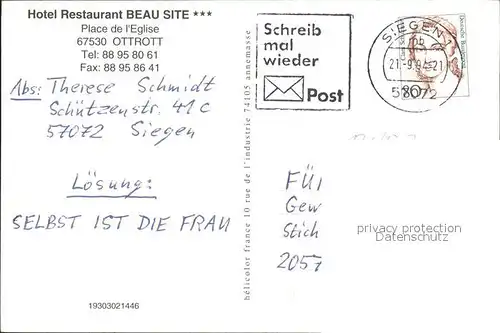 Hotel Restaurant BEAU SITE ***
Place de l'Eglise
67530 OTTROTT
Tel: 88 95 80 61
Fax: 88 95 86 41
Abs: Therese Schmidt
Schützenstr. 41 C
57072 Siegen
Lösung:
SELBST IST DIE FRAU
19303021446
hélicolor france 10 rue de l'industrie 74105 annemasse
Schreib
mal
wieder
Post
SIEGEN 1
pb
21.-9.94-21
57072
80
FÜ
Gew
Stich
2057
privacy protection
Datenschutz